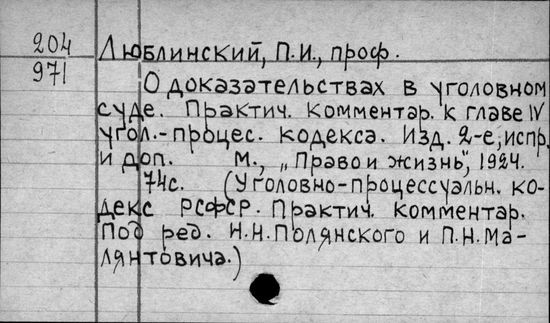 204
971
Люблинский, П.И., проф.
О доказательствах в уголовном
суде. Практич. комментар. к главе IV
угол.-процес. кодекса. Изд. 2-е, испр.
и доп. М., „Право и жизнь", 1924.
74с. (Уголовно-процессуальн. ко-
декс РСФСР. Практич. комментар.
Под ред. Н.Н.Полянского и П.Н.Ма-
лянтовича.)